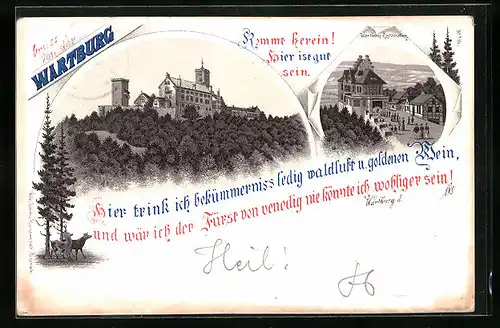 Gruss
von der
WARTBURG
Komme herein!
Hier ist gut
sein.
Wartburg Restauration
Hier trink ich bekümmerniss ledig waldluft u. goldenen Wein,
und wär ich der Fürst von venedig nie könnte ich wohliger sein!
Wartburg d.
Heil!